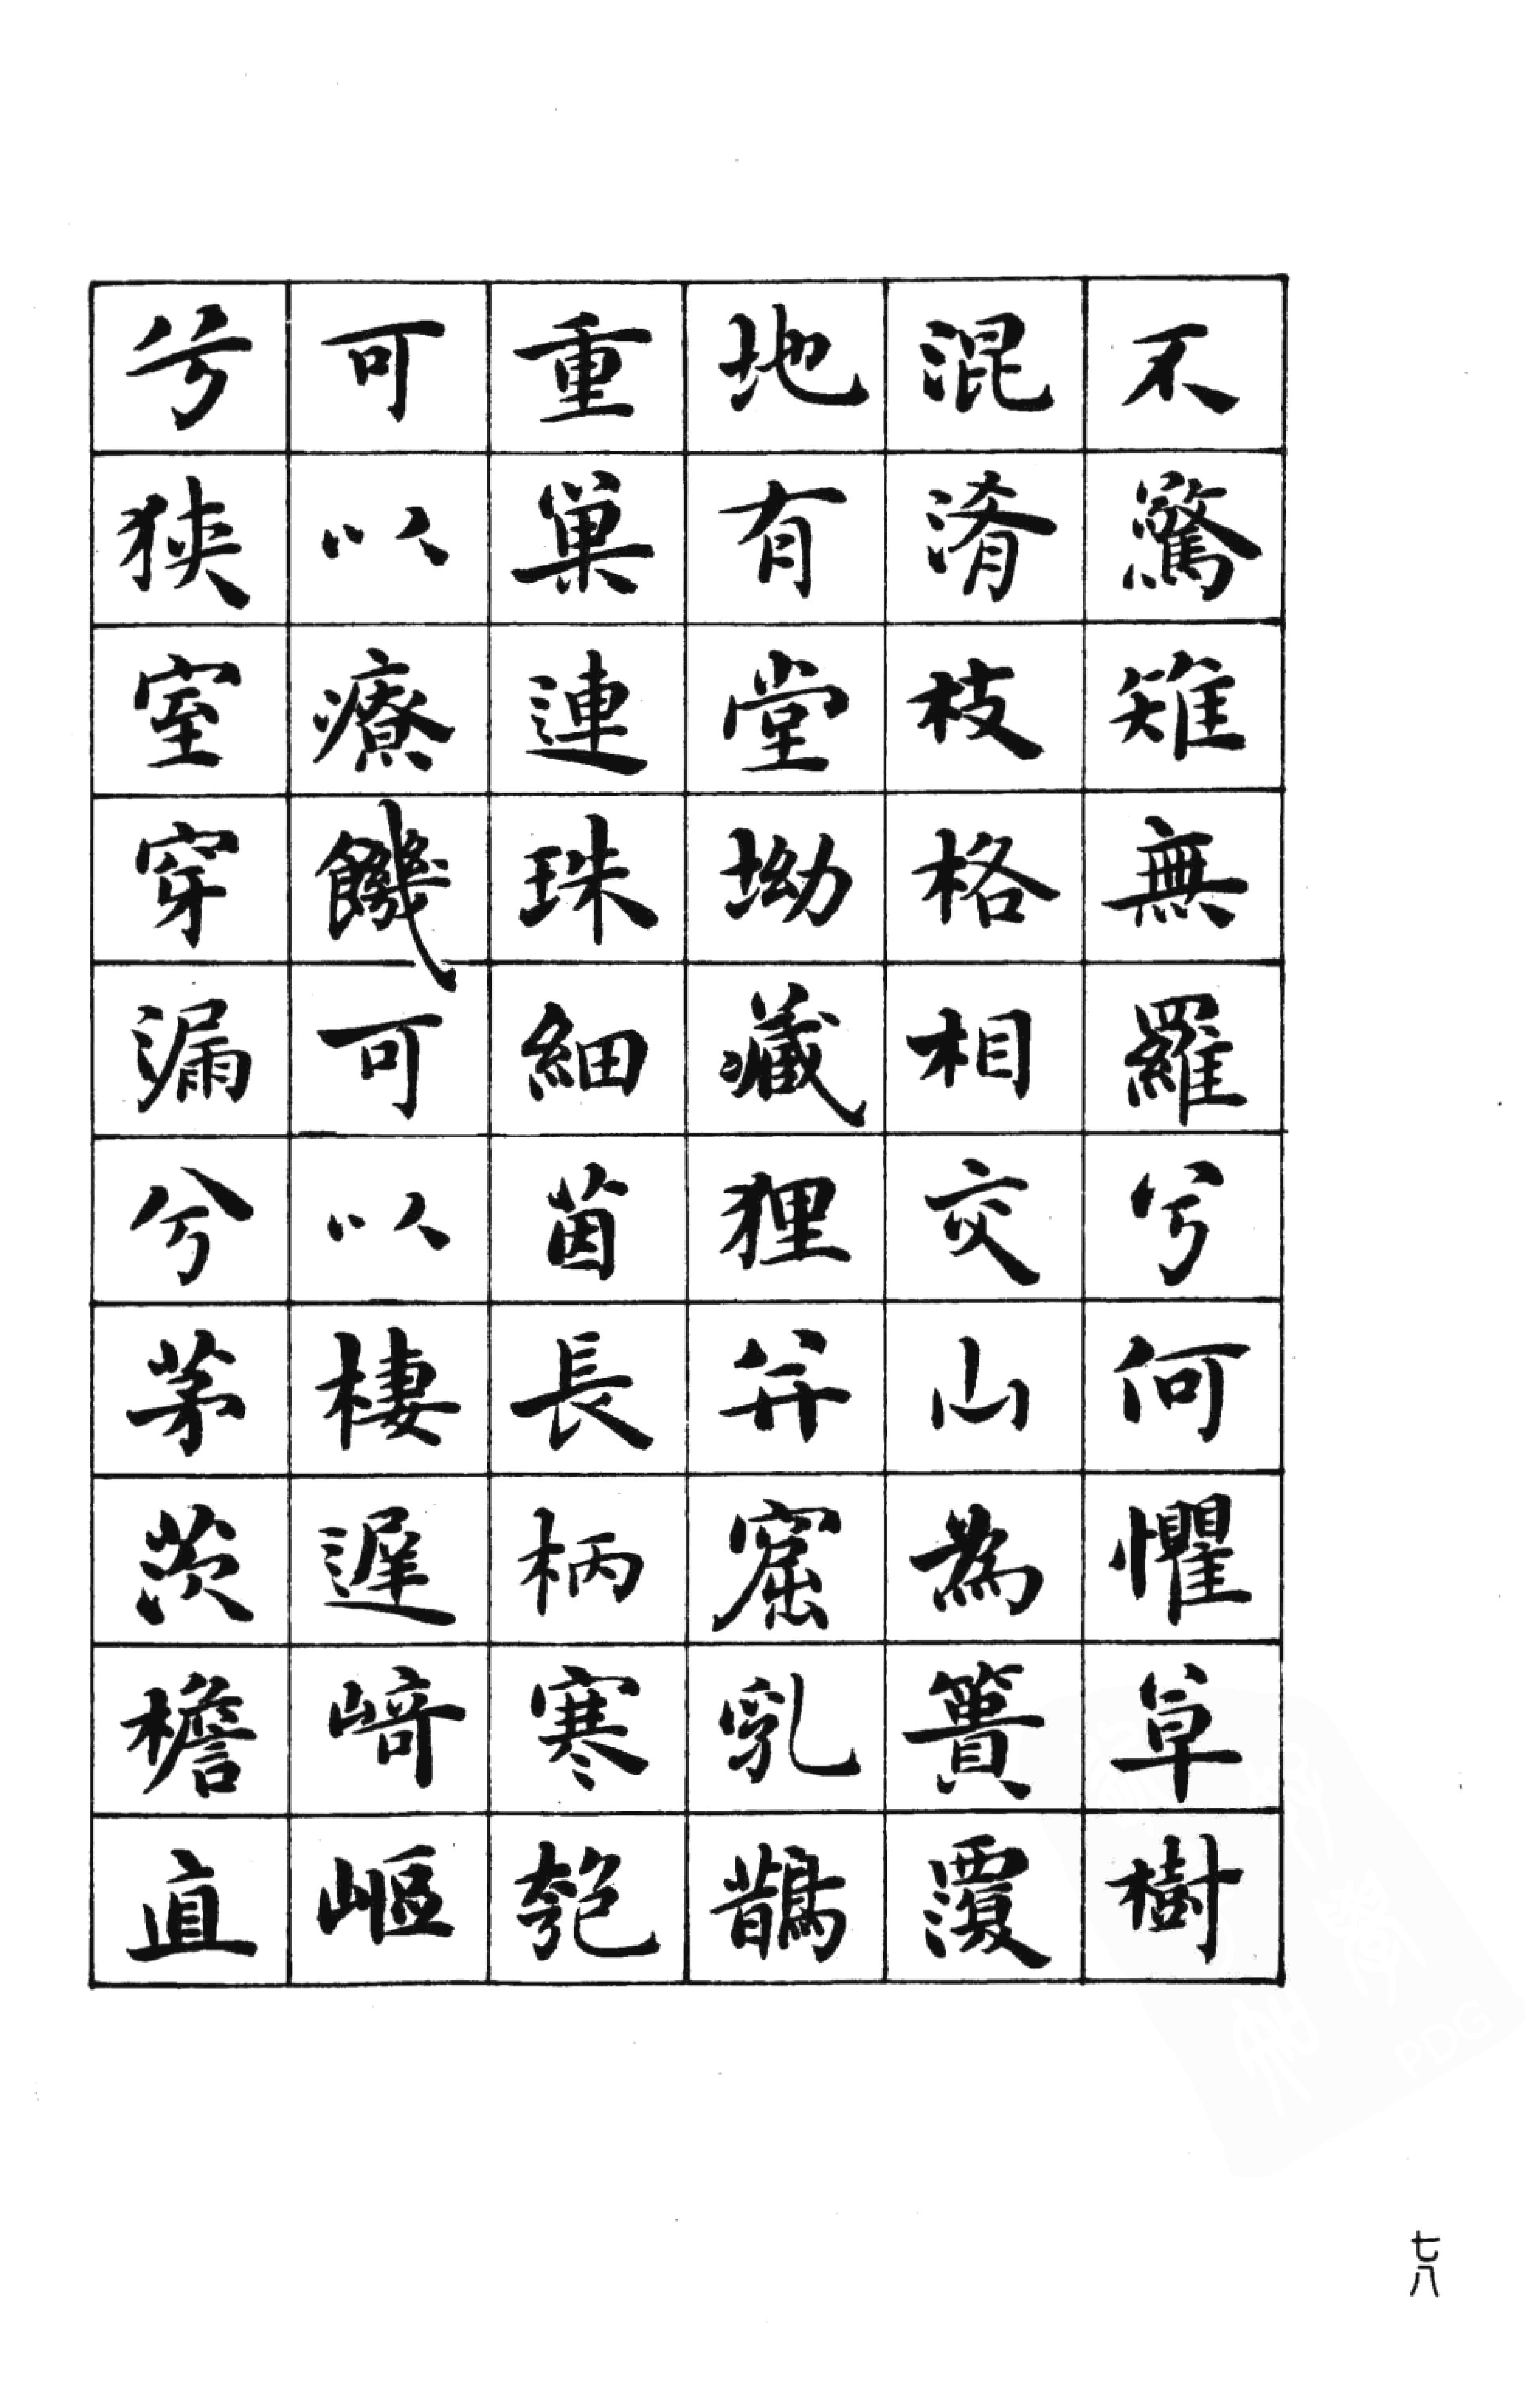 不驚雉無羅兮何懼草樹
混淆枝格相交山為簣覆
地有堂坳藏狸并窟乳鵲
重巢連珠細茵長柄寒匏
可以療饑可以棲遲𡺸嶇
兮狹室穿漏兮茅茨檐直
七八